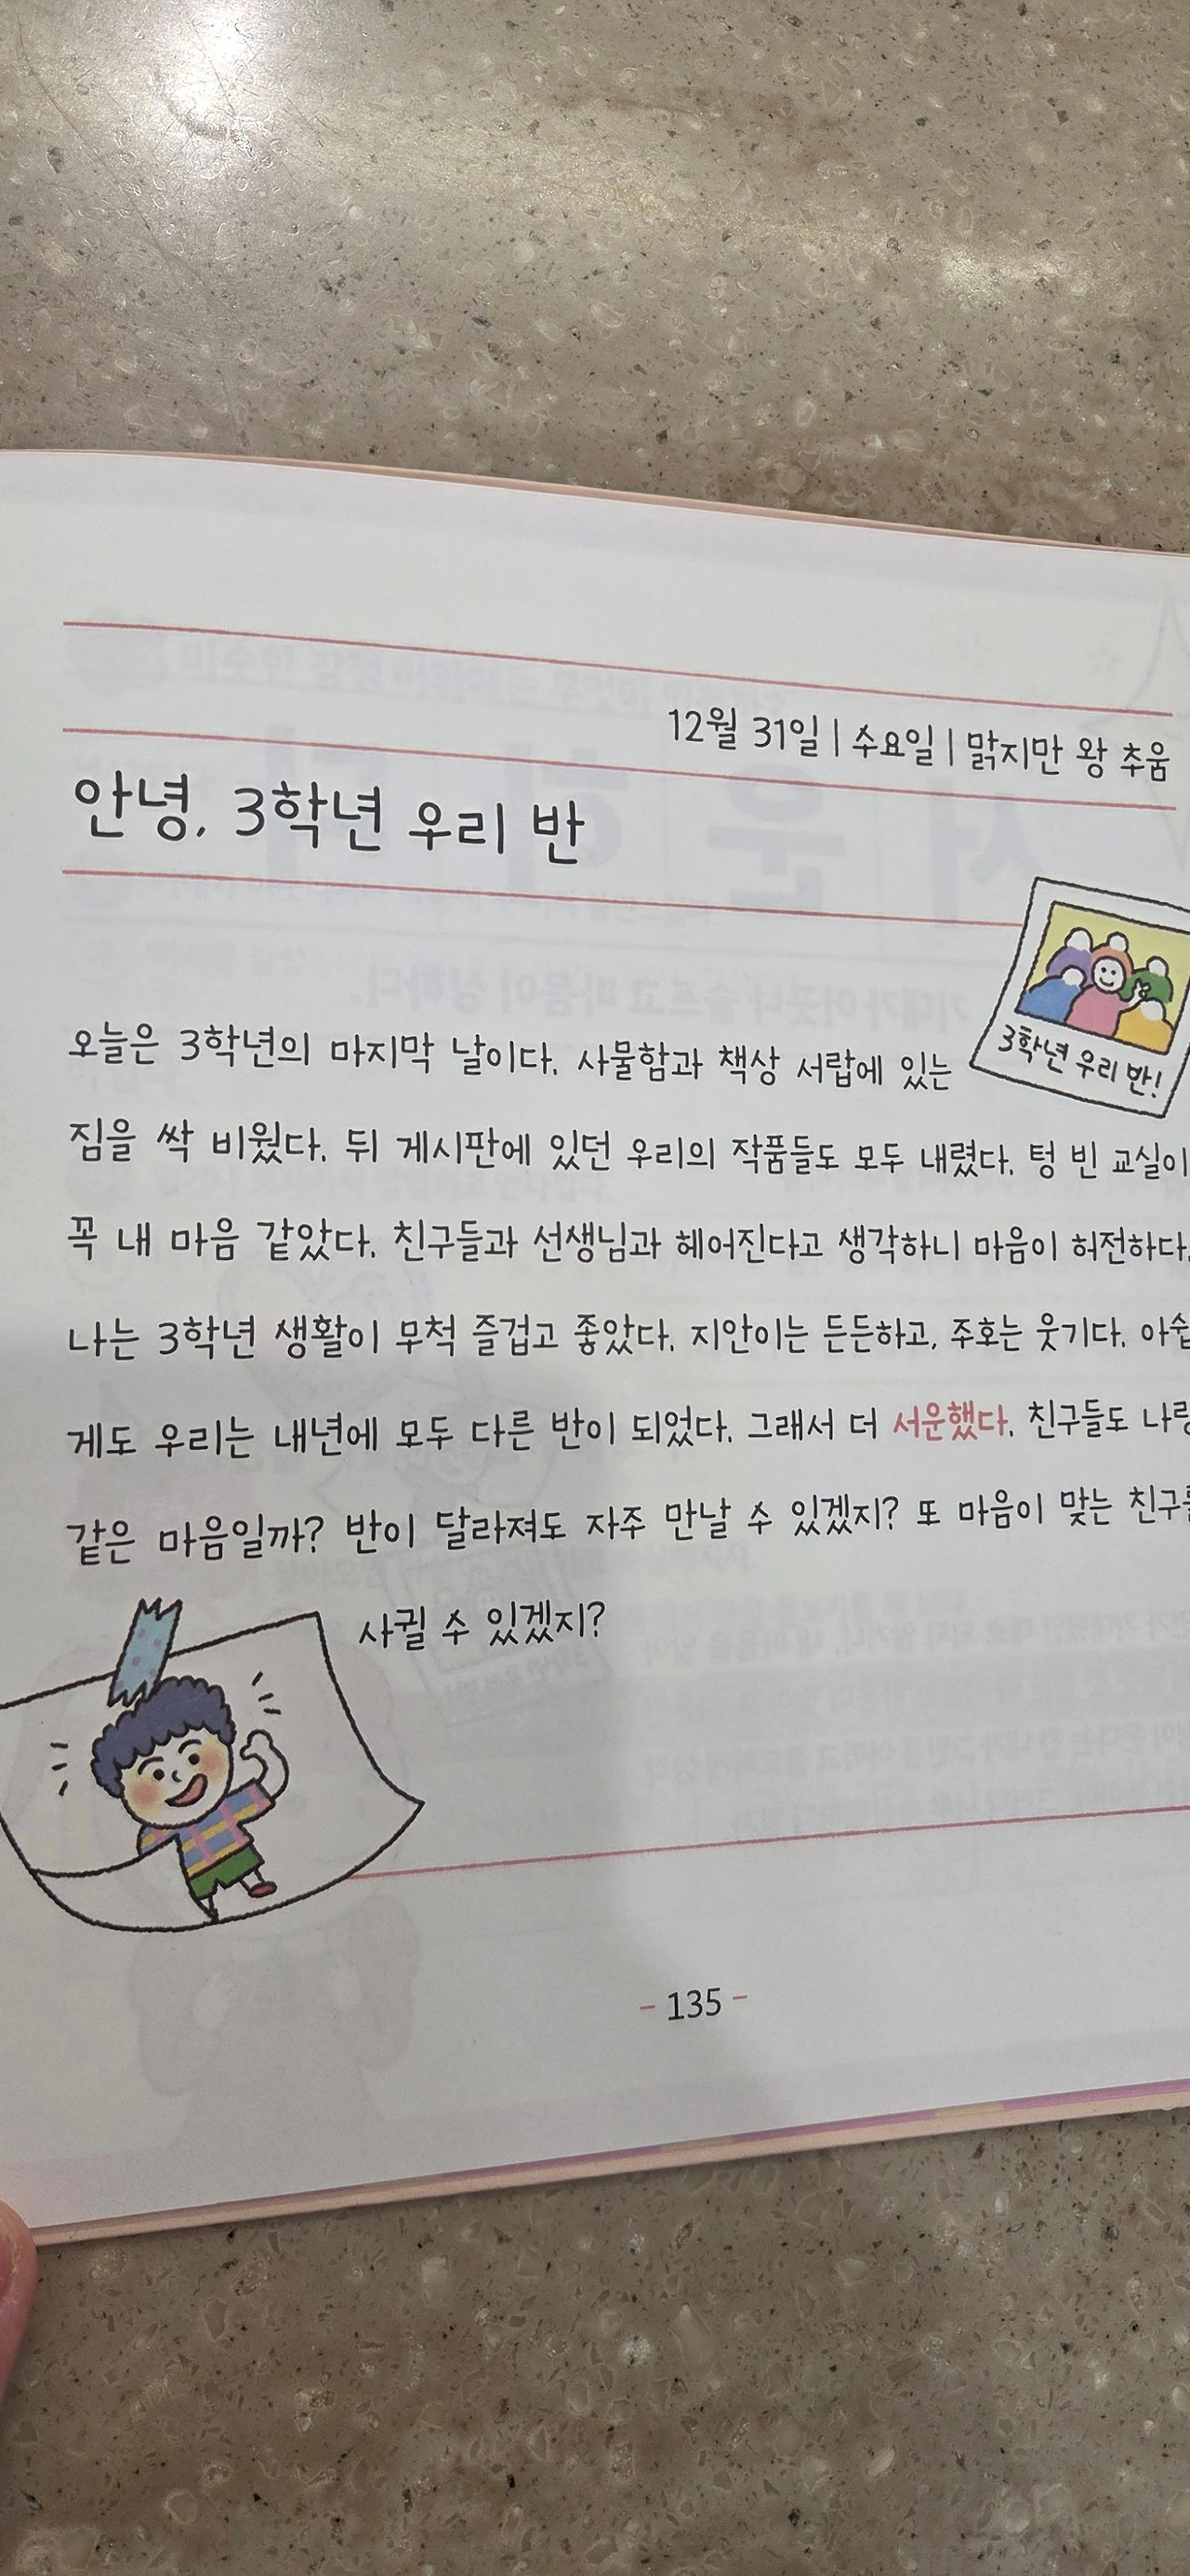 12월 31일 | 수요일 | 맑지만 왕 추움
안녕, 3학년 우리 반
3학년 우리 반!
오늘은 3학년의 마지막 날이다. 사물함과 책상 서랍에 있는
짐을 싹 비웠다. 뒤 게시판에 있던 우리의 작품들도 모두 내렸다. 텅 빈 교실이
꼭 내 마음 같았다. 친구들과 선생님과 헤어진다고 생각하니 마음이 허전하다.
나는 3학년 생활이 무척 즐겁고 좋았다. 지안이는 든든하고, 주호는 웃기다. 아쉽
게도 우리는 내년에 모두 다른 반이 되었다. 그래서 더 서운했다. 친구들도 나랑
같은 마음일까? 반이 달라져도 자주 만날 수 있겠지? 또 마음이 맞는 친구를
사귈 수 있겠지?
- 135 -